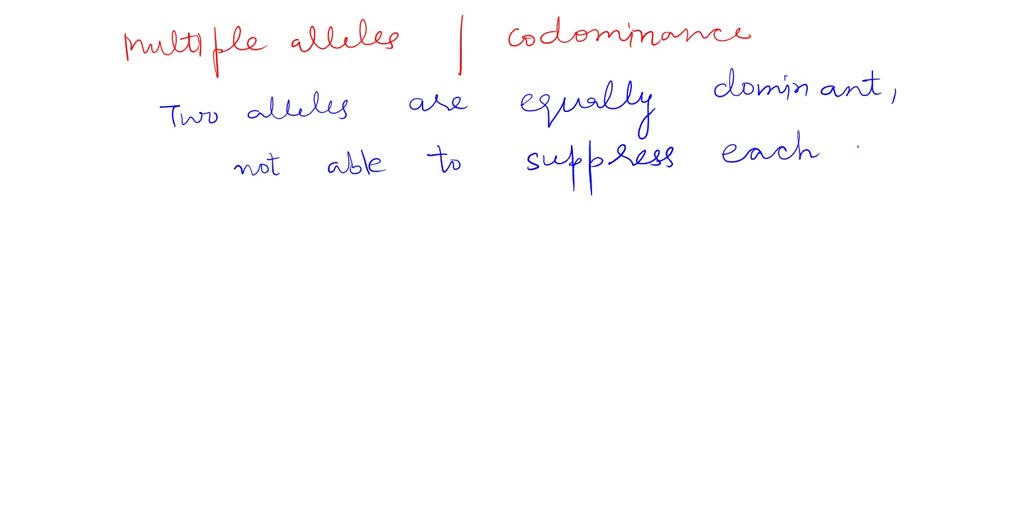 multiple alleles | codominance
Two alleles are equally dominant,
not able to suppress each